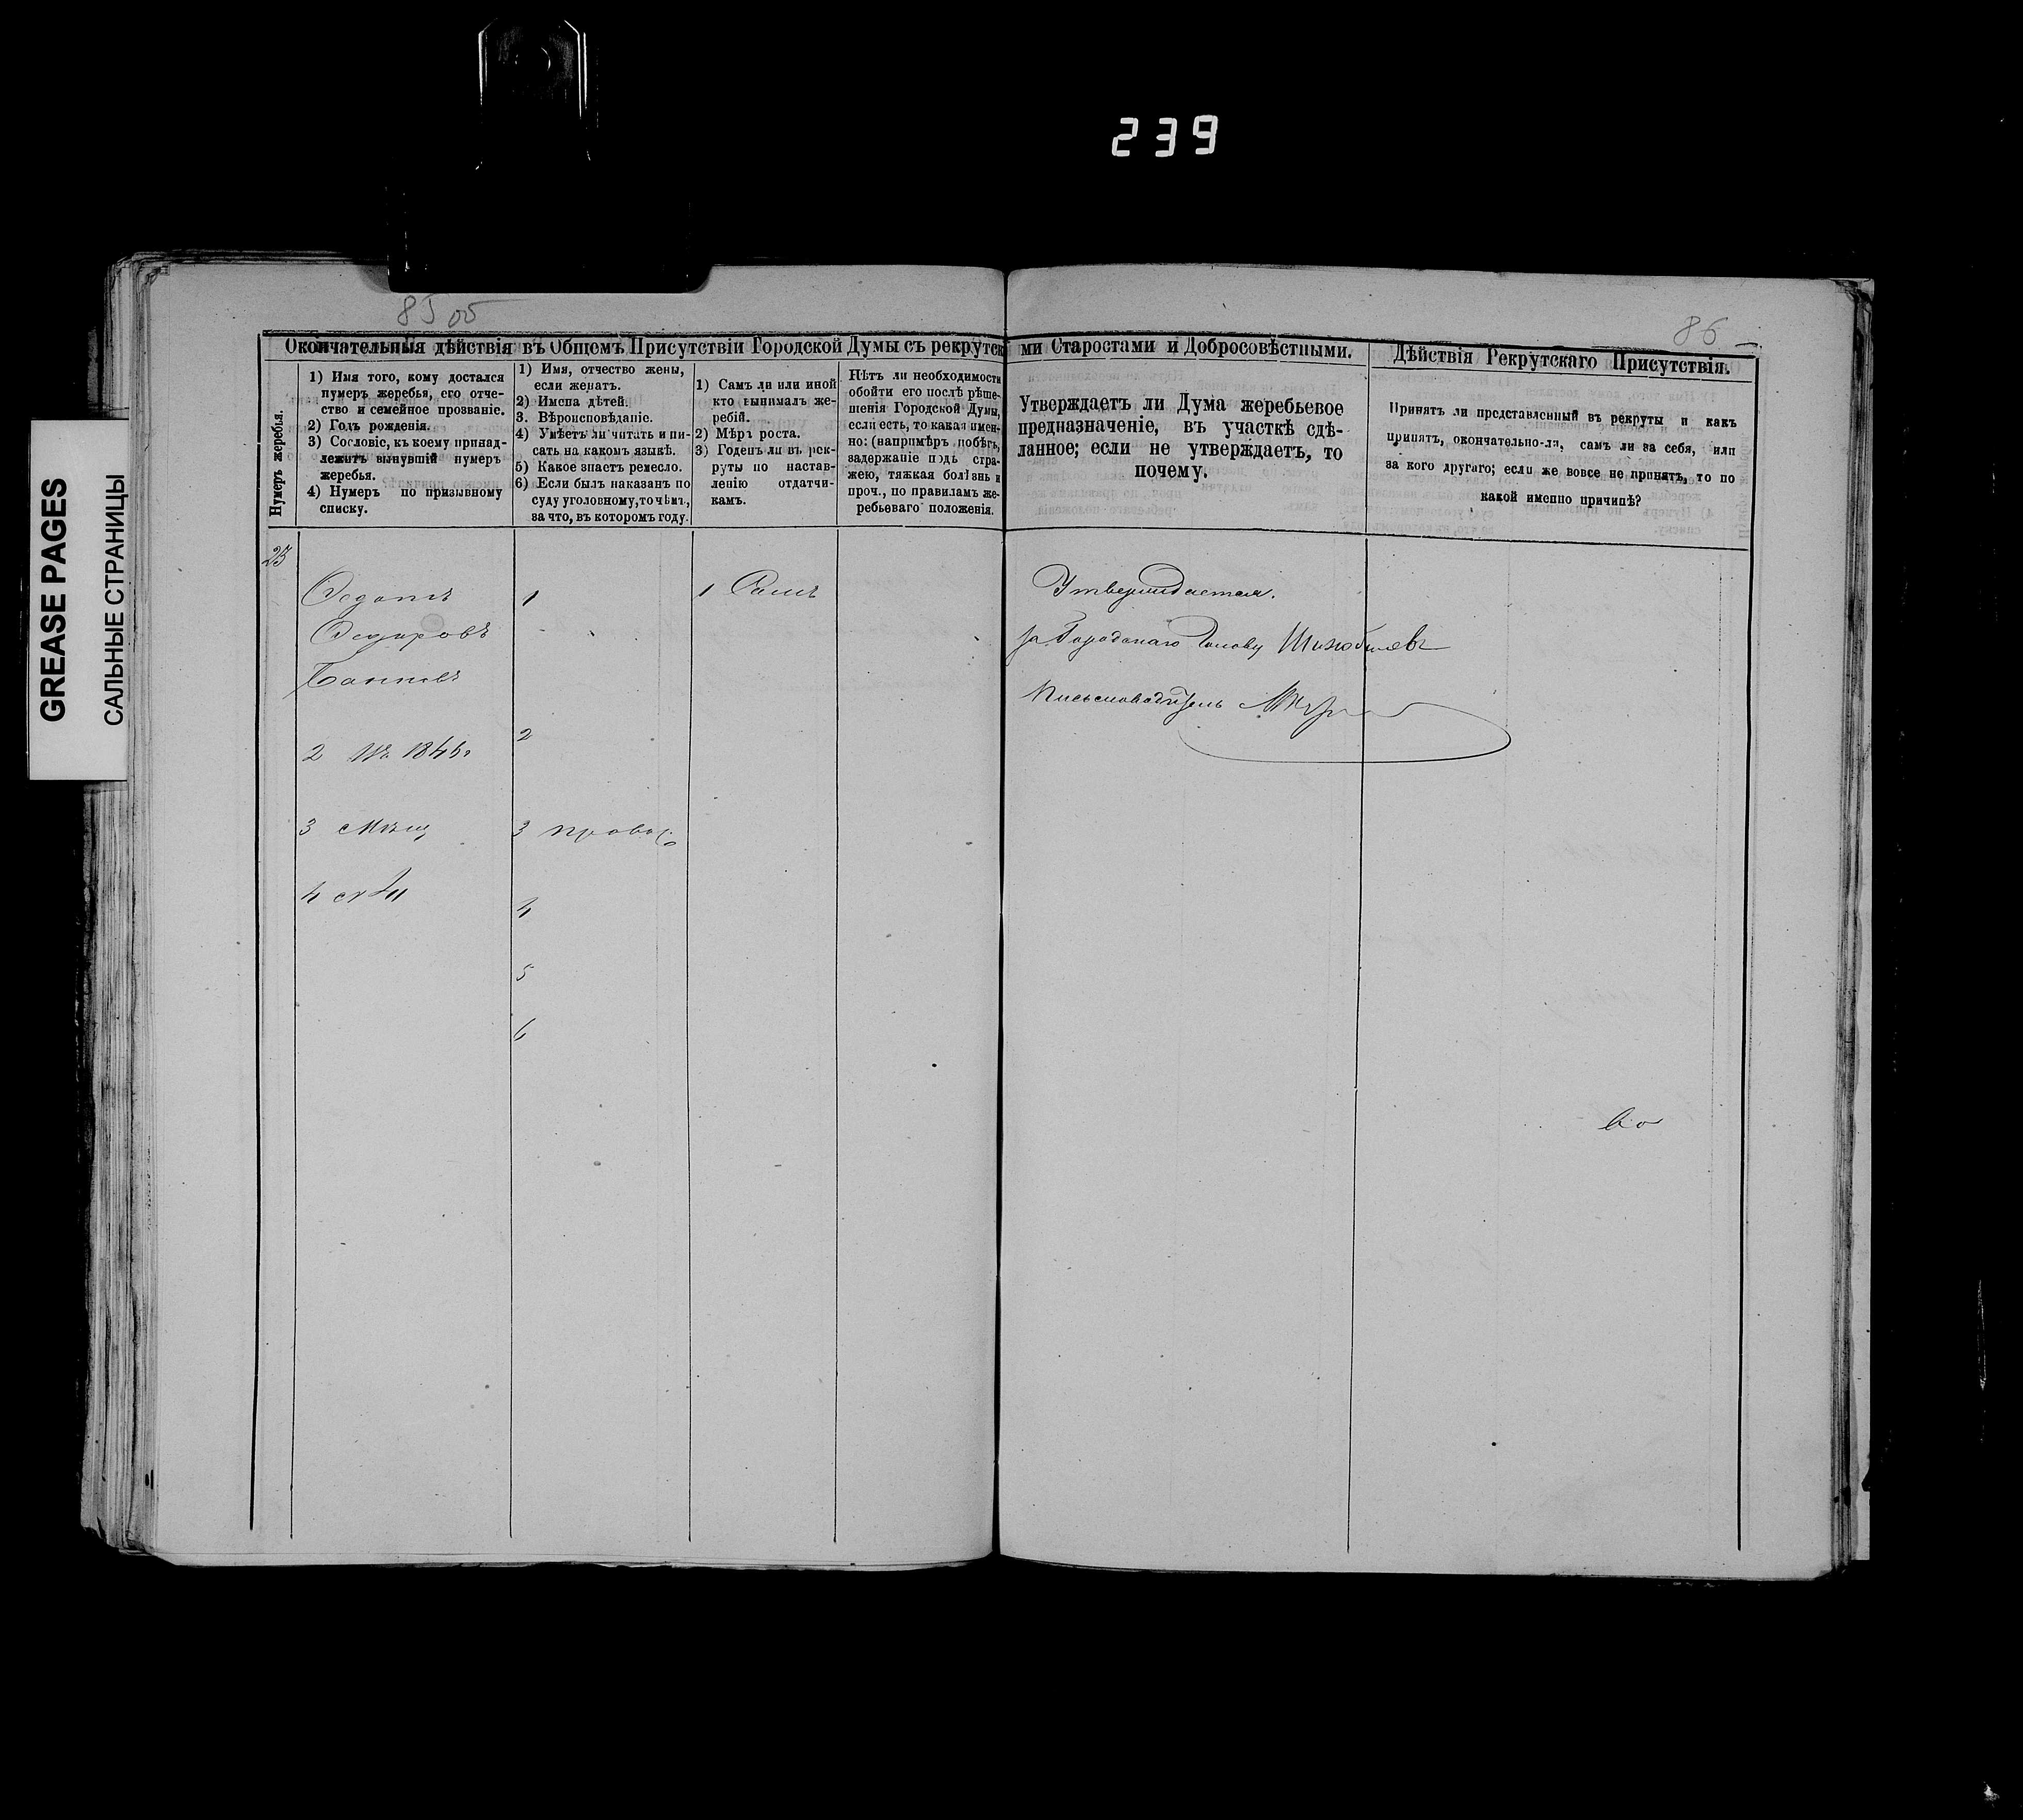 239
GREASE PAGES
САЛЬНЫЕ СТРАНИЦЫ
85 об
86
Окончательныя дѣйствія въ Общемъ Присутствіи Городской Думы съ рекрутск
ми Старостами и Добросовѣстными.
Дѣйствія Рекрутскаго Присутствія.
Нумеръ жеребья.
1) Имя того, кому достался
нумеръ жеребья, его отче-
ство и семейное прозваніе.
2) Годъ рожденія.
3) Сословіе, къ коему принад-
лежитъ вынувшій нумеръ
жеребья.
4) Нумеръ по призывному
списку.
1) Имя, отчество жены,
если женатъ.
2) Имена дѣтей.
3. Вѣроисповѣданіе.
4) Умѣетъ ли читать и пи-
сать на какомъ языкѣ.
5) Какое знаетъ ремесло.
6) Если былъ наказанъ по
суду уголовному, то чѣмъ,
за что, въ которомъ году.
1) Самъ ли или иной
кто вынималъ же-
ребій.
2) Мѣръ роста.
3) Годенъ ли въ рек-
руты по настав-
ленію отдатчи-
камъ.
Нѣтъ ли необходимости
обойти его послѣ рѣше-
шенія Городской Думы,
если есть, то какая имен-
но: (напримѣръ побѣгъ,
задержаніе подъ стра-
жею, тяжкая болѣзнь и
проч., по правиламъ же-
ребьеваго положенія.
Утверждаетъ ли Дума жеребьевое
предназначеніе, въ участкѣ сдѣ-
ланное; если не утверждаетъ, то
почему.
Принятъ ли представленный въ рекруты и какъ
принятъ, окончательно-ли, самъ ли за себя, или
за кого другаго; если же вовсе не принятъ, то по
какой именно причинѣ?
Ѳедотъ
2
3 Мѣщ
4
1
2
3 правос
4
5
6
1 Самъ
Утверждается.
за Городскаго Голову
Письмоводитель